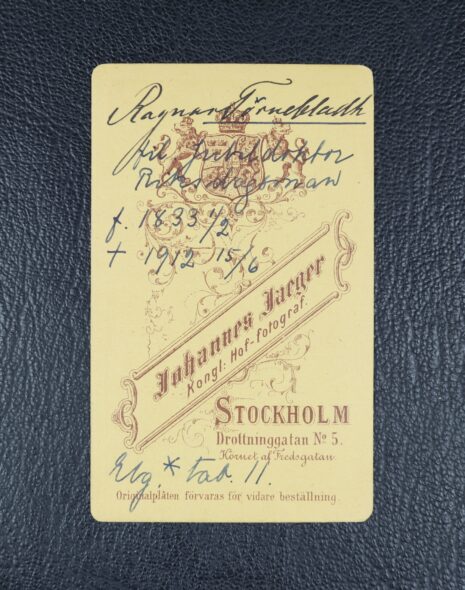 Ragnar Törnebladh
fil. jubeldoktor
Riksdagsman
f. 1833 4/2
† 1912 15/6
Johannes Jaeger
Kongl: Hof-fotograf.
STOCKHOLM
Drottninggatan No 5.
Hörnet af Fredsgatan.
Elg. * tab. 11.
Originalplåten förvaras för vidare beställning.